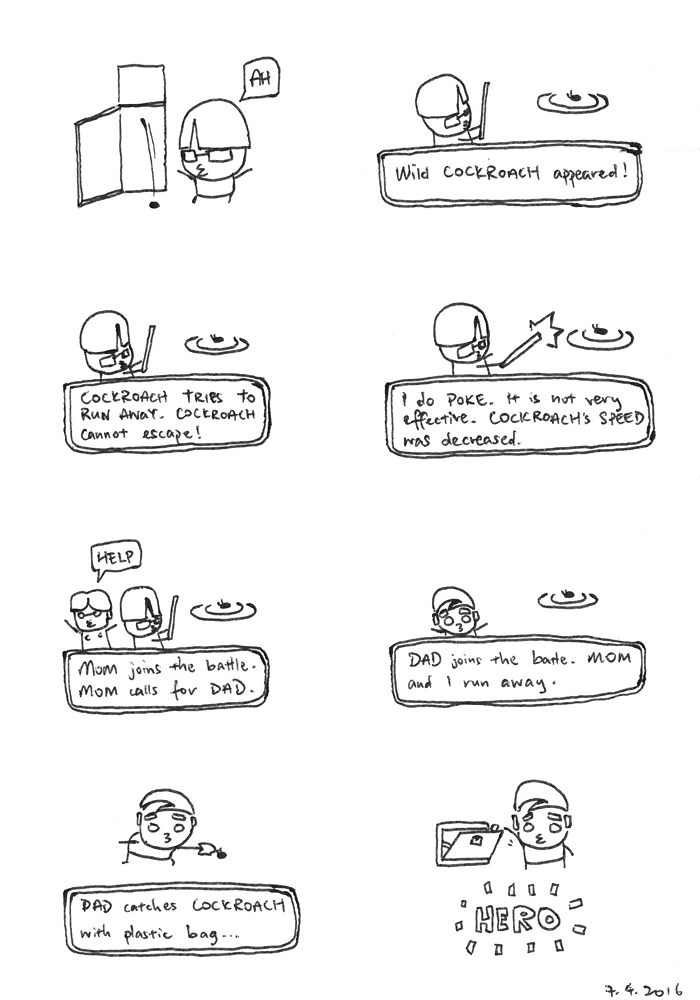 AH
Wild COCKROACH appeared!
COCKROACH TRIES to
RUN AWAY. COCKROACH
cannot escape!
I do POKE. It is not very
effective. COCKROACH's SPEED
was decreased.
HELP
Mom joins the battle.
MOM calls for DAD.
DAD joins the battle. MOM
and I run away.
DAD catches COCKROACH
with plastic bag...
HERO
7.4.2016